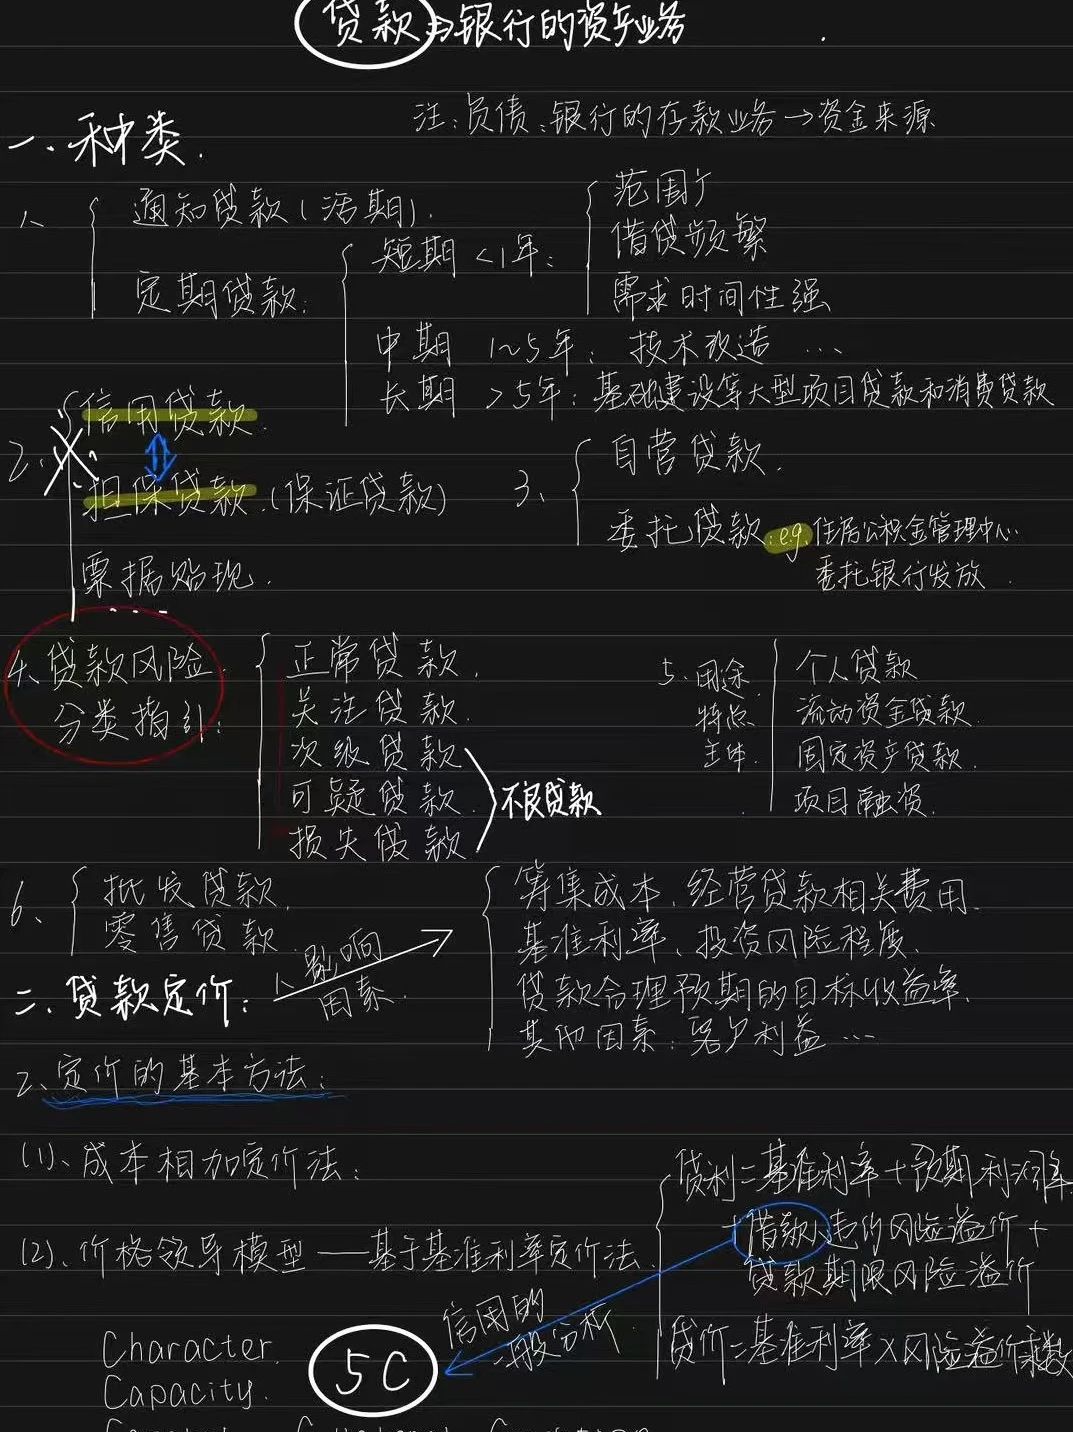 贷款⇒银行的资产业务
注:负债:银行的存款业务→资金来源
一.种类.
1、通知贷款(活期).
定期贷款:
短期<1年:
范围广
借贷频繁
需求时间性强
中期 1~5年: 技术改造 …
长期 >5年: 基础建设等大型项目贷款和消费贷款
2、信用贷款.
担保贷款.(保证贷款)
票据贴现.
...
3、自营贷款.
委托贷款:eg.住房公积金管理中心
委托银行发放.
4、贷款风险
分类指引:
正常贷款.
关注贷款.
次级贷款
可疑贷款.
损失贷款
不良贷款
5、用途
特点
主体.
个人贷款
流动资金贷款.
固定资产贷款.
项目融资.
6、批发贷款.
零售贷款.
二.贷款定价:
1、影响
因素.
筹集成本、经营贷款相关费用.
基准利率、投资风险程度.
贷款合理预期的目标收益率.
其他因素:客户利益 …
2、定价的基本方法:
(1)、成本相加定价法:
(2)、价格领导模型——基于基准利率定价法.
贷利=基准利率+预期利润率
+借款人违约风险溢价+
贷款期限风险溢价
贷价=基准利率×风险溢价乘数
信用的
一般分析.
5C
Character.
Capacity.